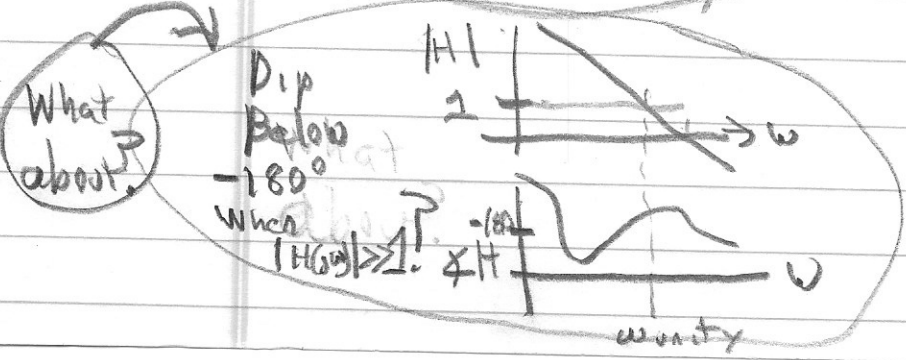 What
about?
Dip
Below
-180°
when
|H(jω)|>>1?
|H|
1
ω
-180
∡H
ω
ωunity